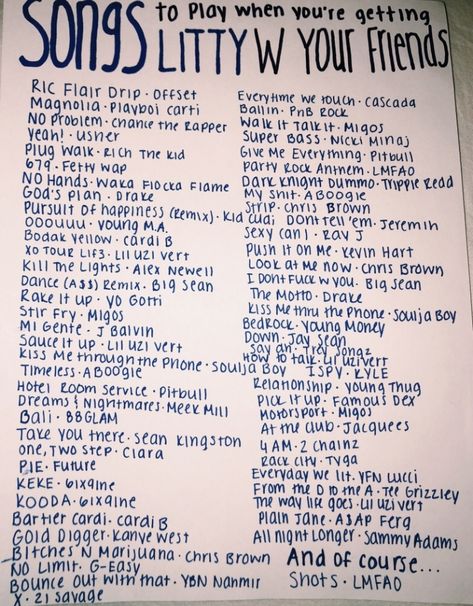 Songs to Play when you're getting
LITTY W Your Friends
RIC Flair Drip · Offset
Magnolia · Playboi Carti
No Problem · Chance the Rapper
Yeah! · Usher
Plug Walk · Rich The Kid
679 · Fetty Wap
No Hands · Waka Flocka Flame
God's Plan · Drake
Pursuit of happiness (Remix) · Kid Cudi
OOouuu · young M.A.
Bodak Yellow · cardi B
XO TOUR Lif3 · Lil Uzi Vert
Kill The Lights · Alex Newell
Dance (A$$) Remix · Big Sean
Rake It up · Yo Gotti
Stir Fry · Migos
Mi Gente · J Balvin
Sauce it up · Lil Uzi Vert
Kiss Me through the Phone · Soulja Boy
Timeless · A Boogie
Hotel Room Service · Pitbull
Dreams & Nightmares · Meek Mill
Bali · BBGLAM
Take you there · Sean Kingston
One, Two Step · Ciara
PIE · Future
KEKE · 6ix9ine
KOODA · 6ix9ine
Bartier Cardi · cardi B
Gold Digger · Kanye West
Bitches N Marijuana · Chris Brown
No Limit · G-Easy
Bounce Out with that · YBN Nahmir
X · 21 Savage
Everytime We touch · Cascada
Ballin · PnB Rock
Walk It Talk It · Migos
Super Bass · Nicki Minaj
Give Me Everything · Pitbull
Party Rock Anthem · LMFAO
Dark Knight Dummo · Trippie Redd
My Shit · A Boogie
Strip · Chris Brown
Don't Tell 'em · Jeremih
Sexy can I · Ray J
Push it On Me · Kevin Hart
Look at Me now · Chris Brown
I Dont Fuck W you · Big Sean
The Motto · Drake
Kiss Me thru the Phone · Soulja Boy
Bedrock · Young Money
Down · Jay Sean
Say ah · Trey Songz
How to talk · Lil Uzi Vert
ISPY · KYLE
Relationship · Young Thug
Pick It up · Famous Dex
Motorsport · Migos
At the club · Jacquees
4 AM · 2 Chainz
Rack City · Tyga
Everyday We lit · YFN Lucci
From the D to the A · Tee Grizzley
The way life goes · Lil Uzi Vert
Plain Jane · A$AP Ferg
All night Longer · Sammy Adams
And of course...
Shots · LMFAO